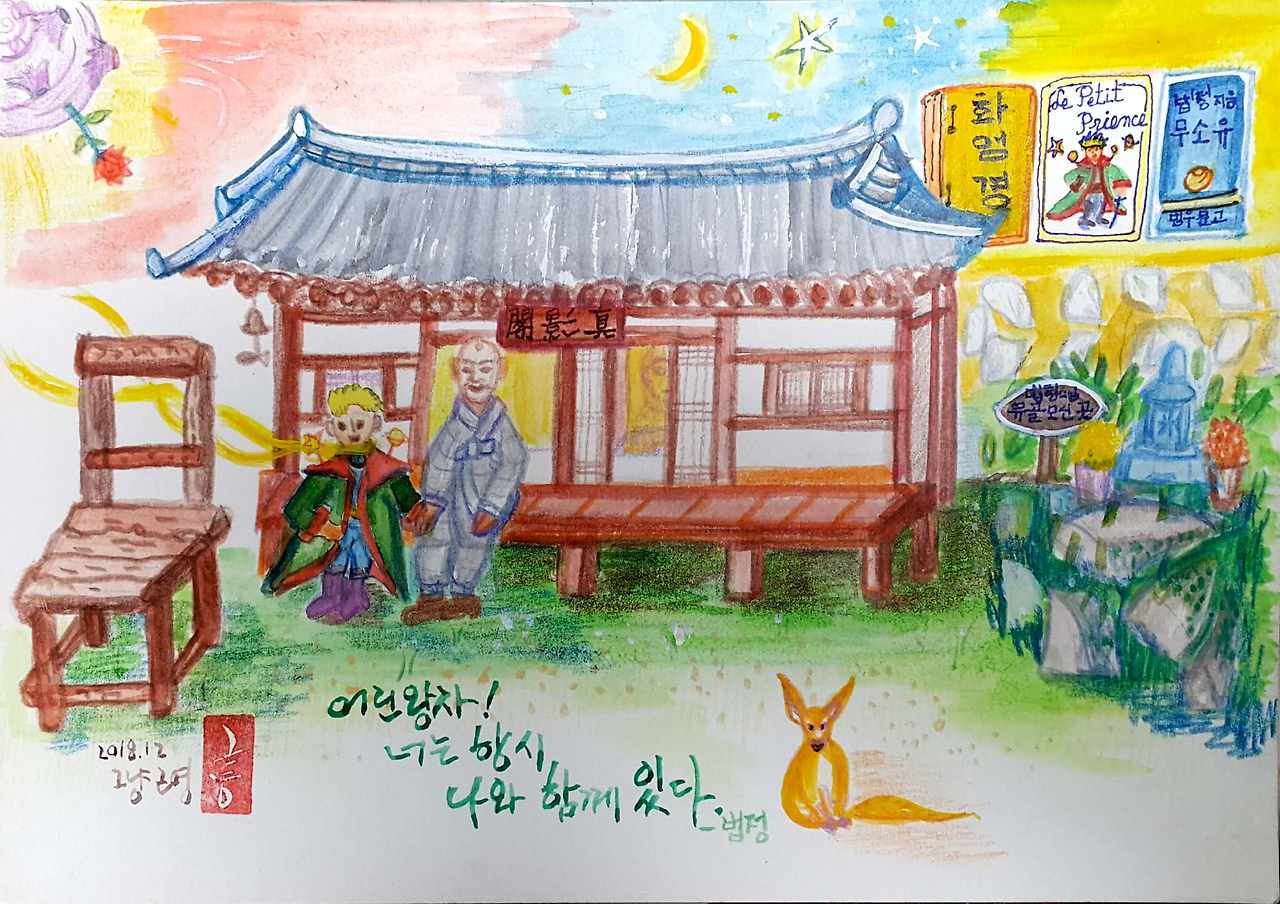 화엄경
Le Petit
Prience
법정 지음
무소유
범우문고
閣影真
법정스님
유골 모신 곳
어린왕자!
너는 항시
나와 함께 있다.
법정
2018.12
그냥